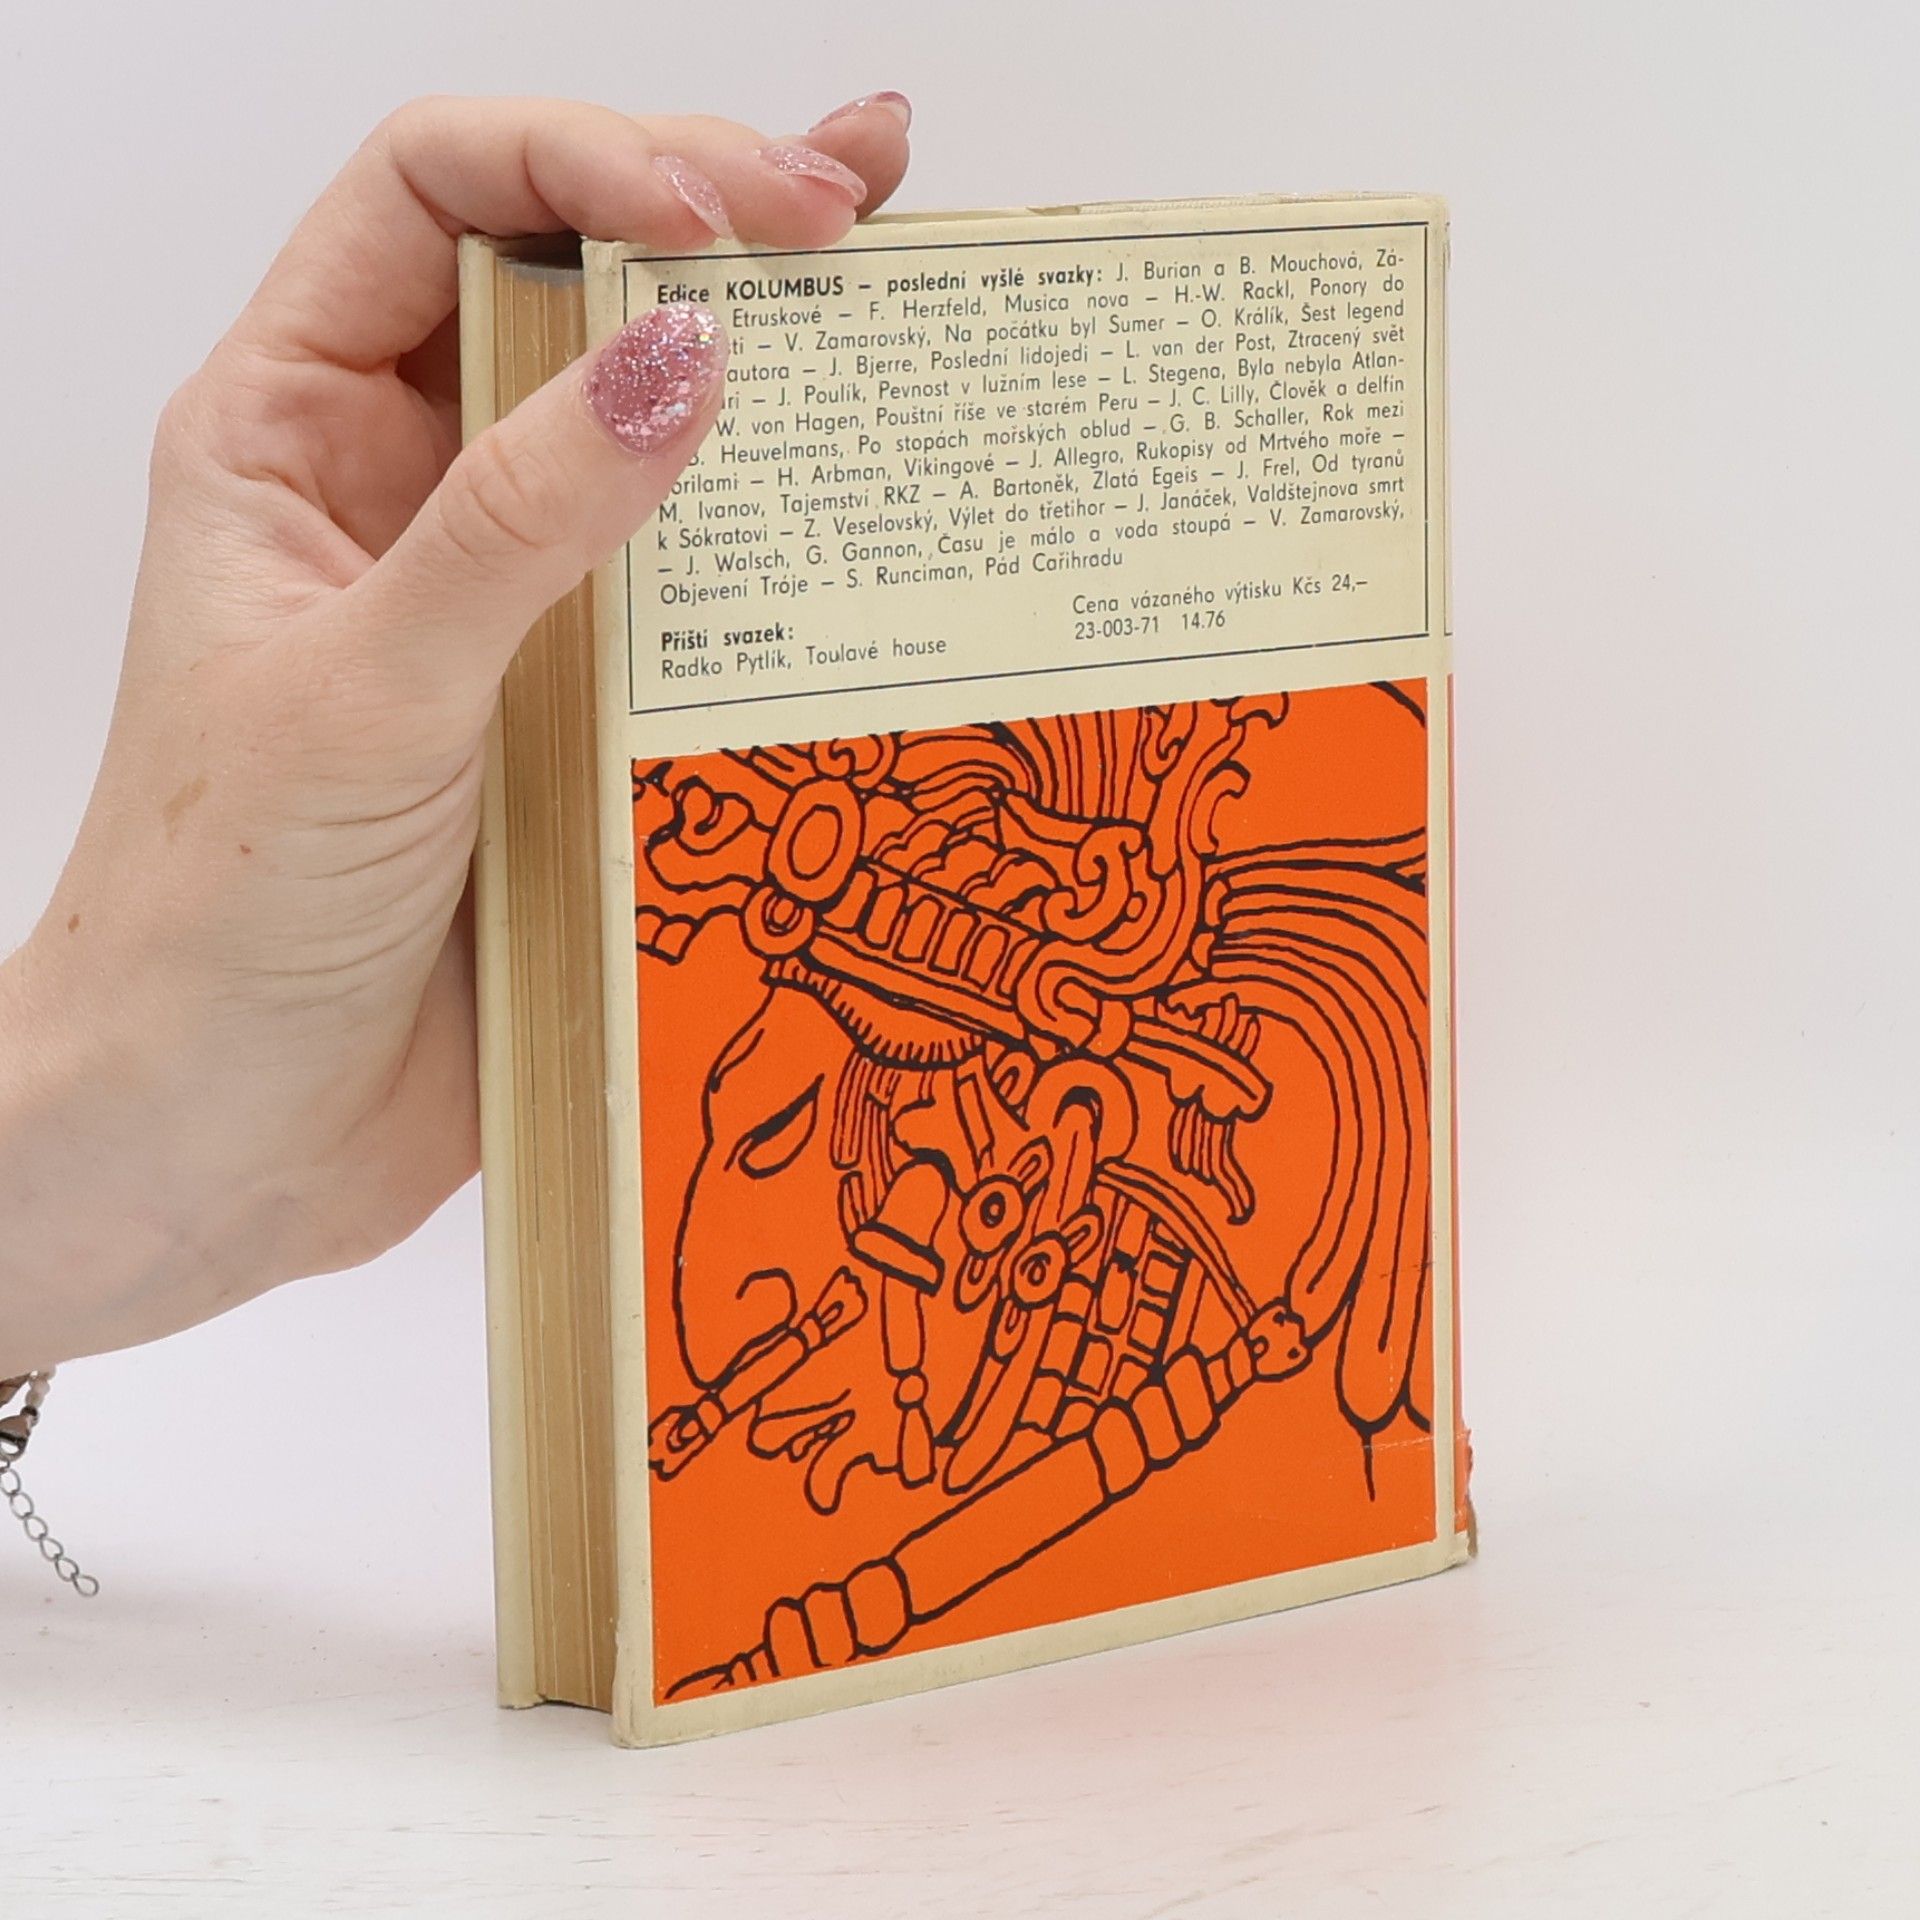 Edice KOLUMBUS – poslední vyšlé svazky: J. Burian a B. Mouchová, Zá-
Etruskové – F. Herzfeld, Musica nova – H.-W. Rackl, Ponory do
sti – V. Zamarovský, Na počátku byl Sumer – O. Králík, Šest legend
autora – J. Bjerre, Poslední lidojedi – L. van der Post, Ztracený svět
ri – J. Poulík, Pevnost v lužním lese – L. Stegena, Byla nebyla Atlan-
W. von Hagen, Pouštní říše ve starém Peru – J. C. Lilly, Člověk a delfín
B. Heuvelmans, Po stopách mořských oblud – G. B. Schaller, Rok mezi
orilami – H. Arbman, Vikingové – J. Allegro, Rukopisy od Mrtvého moře –
M. Ivanov, Tajemství RKZ – A. Bartoněk, Zlatá Egeis – J. Frel, Od tyranů
k Sókratovi – Z. Veselovský, Výlet do třetihor – J. Janáček, Valdštejnova smrt
– J. Walsch, G. Gannon, Času je málo a voda stoupá – V. Zamarovský,
Objevení Tróje – S. Runciman, Pád Cařihradu
Cena vázaného výtisku Kčs 24,–
23-003-71 14.76
Příští svazek:
Radko Pytlík, Toulavé house